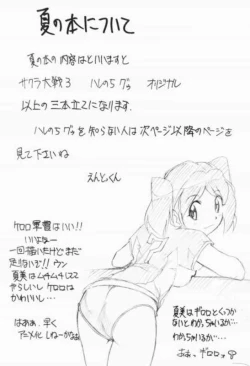 夏の本について
夏の本の内容はといいますと
サクラ大戦3 ハレのちグゥ オリジナル
以上の三本立てになります。
ハレのちグゥを知らない人は次ページ以降のページを
見て下さいね
えんどくん
ケロ軍曹はいい!!
いいよなー
一回描いたけどまだ
足りないぜ!! ウン
夏美はムチムチしてて
やらしいし ケロロは
かわいいし…
はぁぁ、早く
アニメ化しねーかなぁ
夏美はギロロとくっつか
ないとわかっちゃいるが…
わかっちゃいるが…
おお、ギロロッ